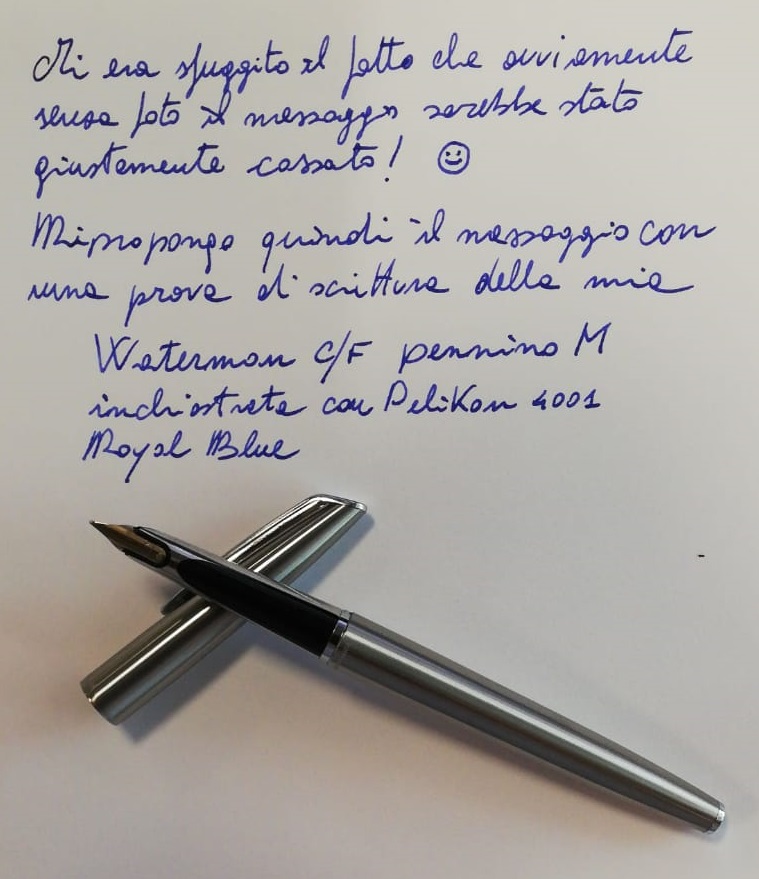 Mi era sfuggito il fatto che ovviamente
senza foto il messaggio sarebbe stato
giustamente cassato! ☺
Mi propongo quindi il messaggio con
una prova di scrittura della mia
Waterman C/F pennino M
inchiostrata con Pelikan 4001
Royal Blue